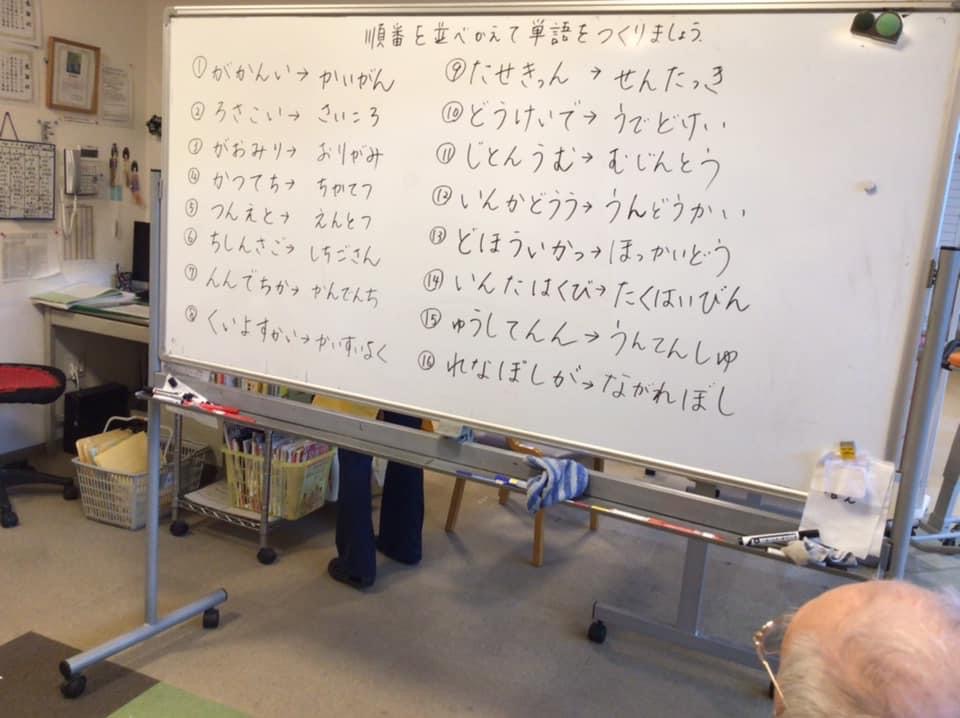 順番を並べかえて単語をつくりましょう
①がかんい→かいがん
②ろさこい→さいころ
③がおみり→おりがみ
④かつてち→ちかてつ
⑤つんえと→えんとつ
⑥ちしんさご→しちごさん
⑦んんでちか→かんでんち
⑧くいよすかい→かいすいよく
⑨たせきっん→せんたっき
⑩どうけいで→うでどけい
⑪じとんうむ→むじんとう
⑫いんかどうう→うんどうかい
⑬どほういかっ→ほっかいどう
⑭いんたはくび→たくはいびん
⑮ゅうしてんん→うんてんしゅ
⑯れなぼしが→ながれぼし